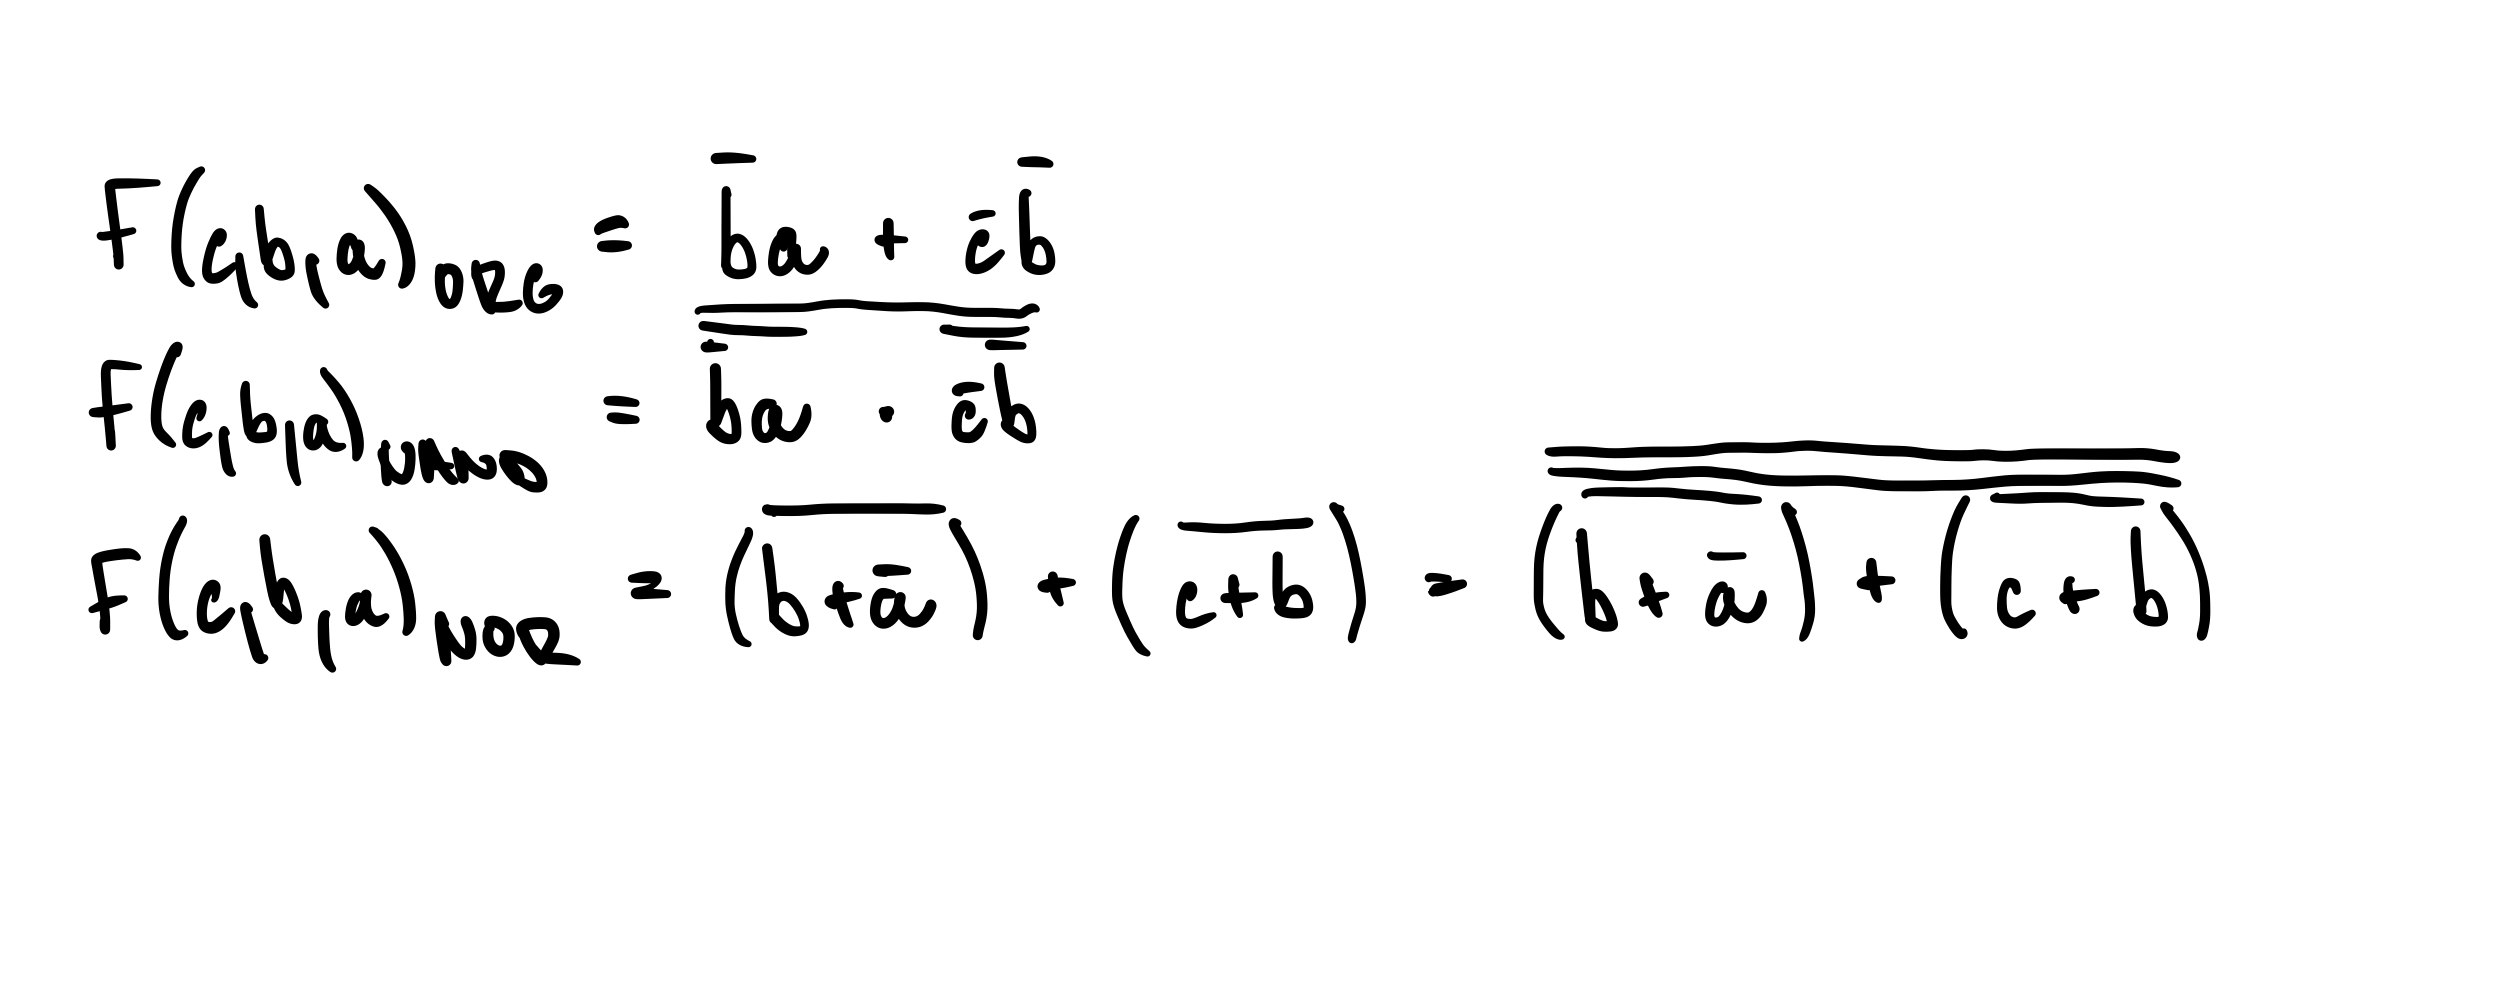 F(c,b,a)ORG = b̅a + c̅b̅
F(c,b,a)NAND = b̅a · c̅b̅
F(c,b,a)NOR = (b+a̅) + (c+b) = (b+a̅) + (c+b)